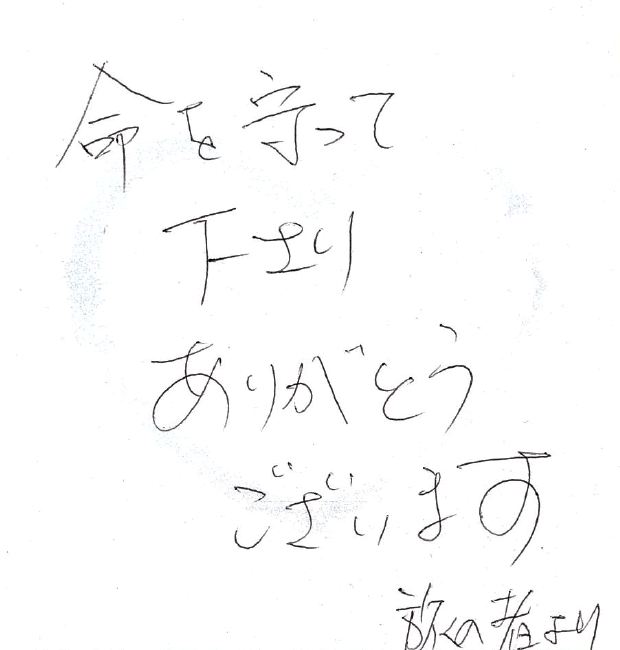 命を守って
下さり
ありがとう
ございます
旅の者より